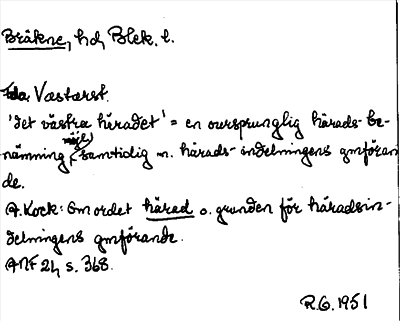 Bräkne, hd, Blek. l.
Vestarst.
'det västra häradet' = en oursprunglig härads-be-
nämning, möjl. samtidig m. härads-indelningens genomföran-
de.
A. Kock: Om ordet härad o. grunden för häradsin-
delningens genomförande.
ANF 21, s. 368.
R.G. 1951